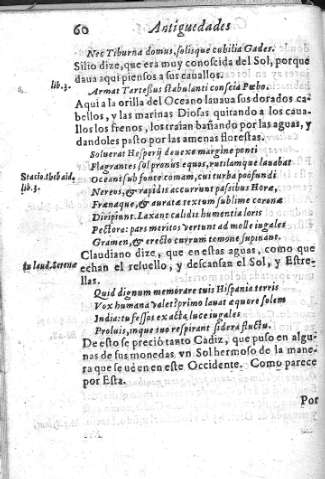 60 Antiguedades
Nec Tiburna domus, solisque cubilia Gades.
Silio dize, que era muy conoscida del Sol, porque
daua aqui piensos a sus cauallos.
lib. 3.
Armat Tartessus stabulanti conscia Pœbo.
Aqui a la orilla del Oceano lauaua sus dorados ca-
bellos, y las marinas Diosas quitando a los caua-
llos los frenos, los traian bañando por las aguas, y
dandoles pasto por las amenas florestas.
Soluerat Hesperij deuexe margine ponti
Flagrantes sol pronus equos, rutilamque lauabat
Stacio. thebaid.
lib. 3.
Oceani sub fonte comam, cui turba profundi
Nereus, & rapidis accurrunt passibus Horæ,
Frænaque, & auratæ textum sublime coronæ
Diripiunt. Laxant calidis humentia loris
Pectora: pars meritos vertunt ad molle iugales
Gramen, & erecto currum temone supinant.
Claudiano dize, que en estas aguas, como que
in laud. serenæ
echan el resuello, y descansan el Sol, y Estre-
llas.
Quid dignum memorare tuis Hispania terris
Vox humana valet? primo lauat æquore solem
India: tu fessos exacta luce iugales
Proluis, inque tuo respirant sidera fluctu.
De esto se preciò tanto Cadiz, que puso en algu-
nas de sus monedas vn Sol hermoso de la mane-
ra que se uè en este Occidente. Como parece
por Esta.
Por